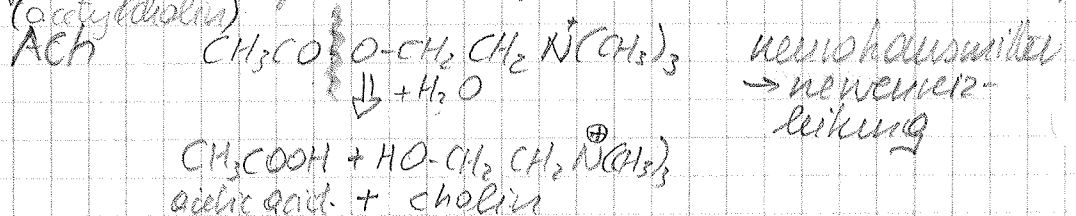 (acetylcholin)
ACh CH₃CO O-CH₂ CH₂ N⁺(CH₃)₃ neurotransmitter
⇓ +H₂O → nervenreiz-
leitung
CH₃COOH + HO-CH₂ CH₂ N⊕(CH₃)₃
acetic acid. + cholin